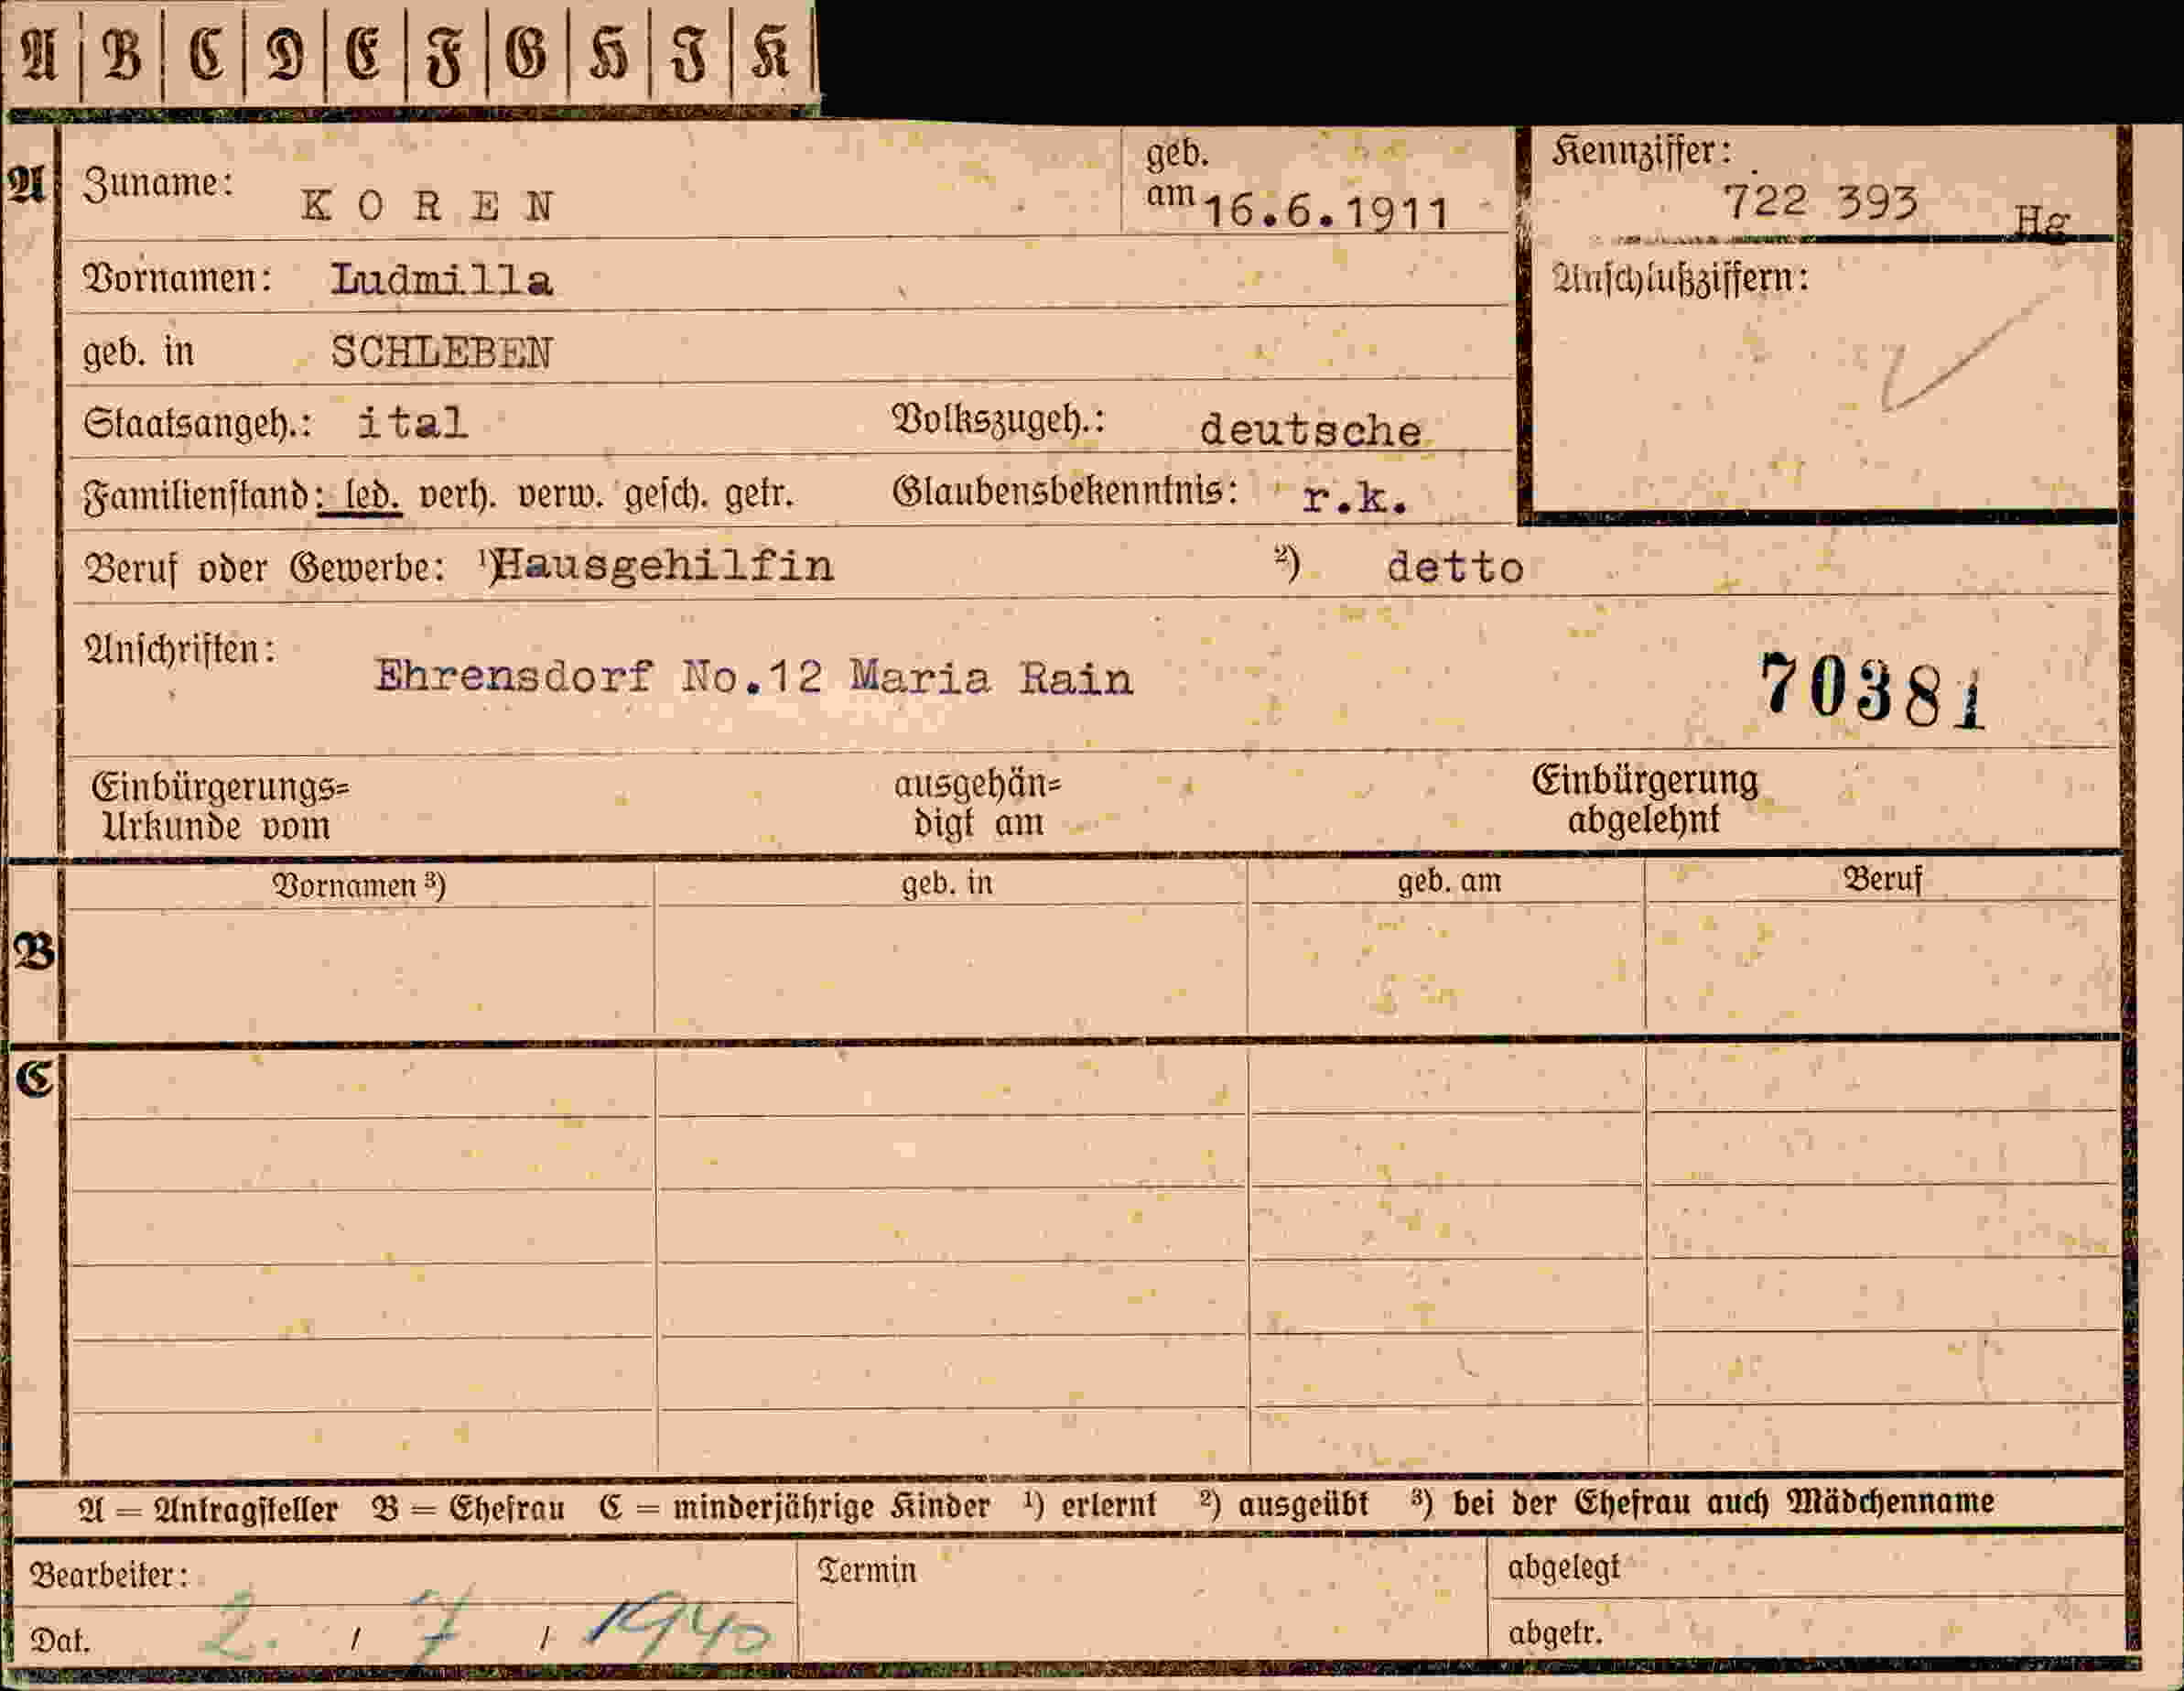 A B C D E F G H I K
A Zuname: KOREN geb. am 16.6.1911 Kennziffer: 722 393 Hg
Vornamen: Ludmilla Anschlußziffern:
geb. in SCHLEBEN
Staatsangeh.: ital Volkszugeh.: deutsche
Familienstand: led. verh. verw. gesch. getr. Glaubensbekenntnis: r.k.
Beruf oder Gewerbe: ¹) Hausgehilfin ²) detto
Anschriften: Ehrensdorf No.12 Maria Rain 70381
Einbürgerungs= ausgehän= Einbürgerung
Urkunde vom digt am abgelehnt
Vornamen ³) geb. in geb. am Beruf
B
C
A = Antragsteller B = Ehefrau C = minderjährige Kinder ¹) erlernt ²) ausgeübt ³) bei der Ehefrau auch Mädchenname
Bearbeiter: Termin abgelegt
Dat. 2. / 7 / 1940 abgetr.